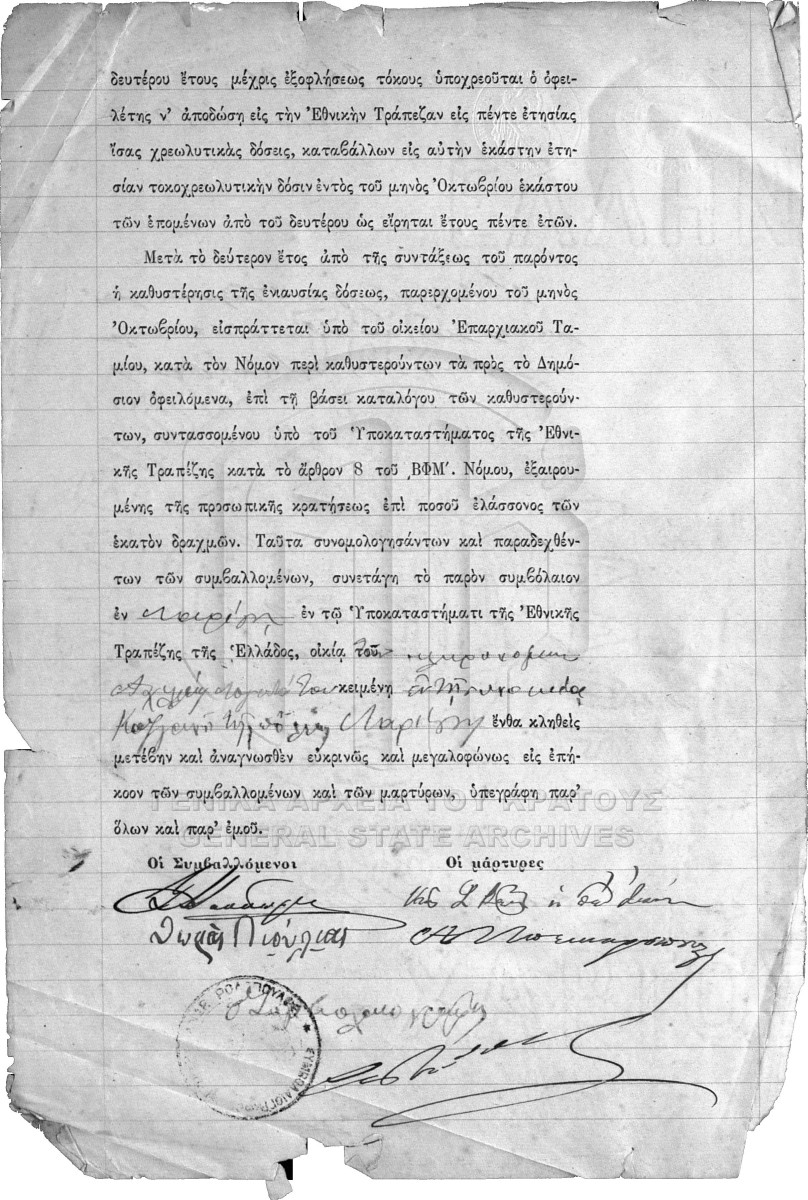 δευτέρου ἔτους μέχρις ἐξοφλήσεως τόκους ὑποχρεοῦται ὁ ὀφει-
λέτης ν' ἀποδώσῃ εἰς τὴν Ἐθνικὴν Τράπεζαν εἰς πέντε ἐτησίας
ἴσας χρεωλυτικὰς δόσεις, καταβάλλων εἰς αὐτὴν ἑκάστην ἐτη-
σίαν τοκοχρεωλυτικὴν δόσιν ἐντὸς τοῦ μηνὸς Ὀκτωβρίου ἑκάστου
τῶν ἑπομένων ἀπὸ τοῦ δευτέρου ὡς εἴρηται ἔτους πέντε ἐτῶν.
Μετὰ τὸ δεύτερον ἔτος ἀπὸ τῆς συντάξεως τοῦ παρόντος
ἡ καθυστέρησις τῆς ἐνιαυσίας δόσεως, παρερχομένου τοῦ μηνὸς
Ὀκτωβρίου, εἰσπράττεται ὑπὸ τοῦ οἰκείου Ἐπαρχιακοῦ Τα-
μίου, κατὰ τὸν Νόμον περὶ καθυστερούντων τὰ πρὸς τὸ Δημό-
σιον ὀφειλόμενα, ἐπὶ τῇ βάσει καταλόγου τῶν καθυστερούν-
των, συντασσομένου ὑπὸ τοῦ Ὑποκαταστήματος τῆς Ἐθνι-
κῆς Τραπέζης κατὰ τὸ ἄρθρον 8 τοῦ ͵ΒΦΜʹ. Νόμου, ἐξαιρου-
μένης τῆς προσωπικῆς κρατήσεως ἐπὶ ποσοῦ ἐλάσσονος τῶν
ἑκατὸν δραχμῶν. Ταῦτα συνομολογησάντων καὶ παραδεχθέν-
των τῶν συμβαλλομένων, συνετάγη τὸ παρὸν συμβόλαιον
ἐν Λαρίσῃ ἐν τῷ Ὑποκαταστήματι τῆς Ἐθνικῆς
Τραπέζης τῆς Ἑλλάδος, οἰκίᾳ τοῦ κληρονόμων
κειμένῃ ἐν τῇ συνοικίᾳ
τῆς πόλεως Λαρίσης ἔνθα κληθεὶς
μετέβην καὶ ἀναγνωσθὲν εὐκρινῶς καὶ μεγαλοφώνως εἰς ἐπή-
κοον τῶν συμβαλλομένων καὶ τῶν μαρτύρων, ὑπεγράφη παρ'
ὅλων καὶ παρ' ἐμοῦ.
ΓΕΝΙΚΑ ΑΡΧΕΙΑ ΤΟΥ ΚΡΑΤΟΥΣ
GENERAL STATE ARCHIVES
Οἱ Συμβαλλόμενοι Οἱ μάρτυρες
Θωμᾶς Λιούλιας
Ὁ Συμβολαιογράφος